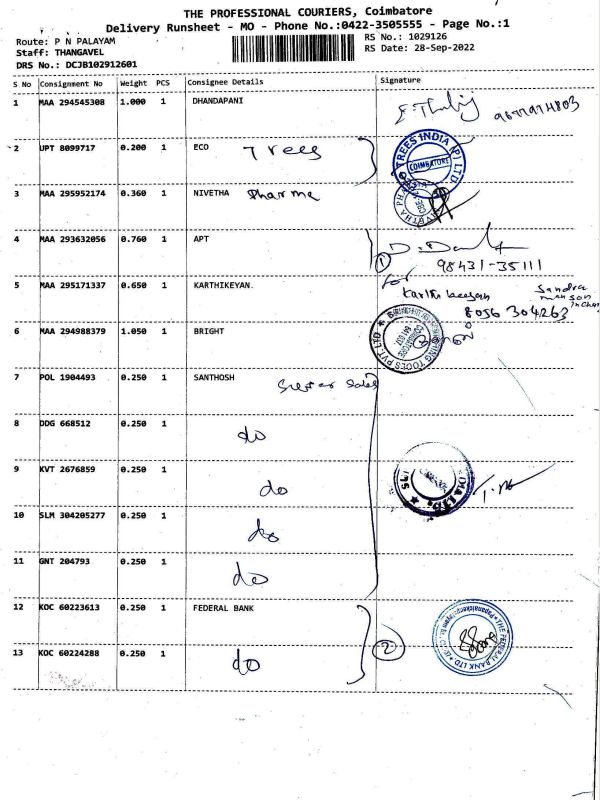 THE PROFESSIONAL COURIERS, Coimbatore
Delivery Runsheet - MO - Phone No.:0422-3505555 - Page No.:1
Route: P N PALAYAM
RS No.: 1029126
Staff: THANGAVEL
RS Date: 28-Sep-2022
DRS No.: DCJB102912601
S No Consignment No Weight PCS Consignee Details Signature
1 MAA 294545308 1.000 1 DHANDAPANI
2 UPT 8099717 0.200 1 ECO Trees
TREES INDIA (P) LTD
COIMBATORE
3 MAA 295952174 0.360 1 NIVETHA Pharma
4 MAA 293632056 0.760 1 APT
1
98431-35111
5 MAA 295171337 0.650 1 KARTHIKEYAN.
for
8056 304263
6 MAA 294988379 1.050 1 BRIGHT
TOOLS PVT. LTD
7 POL 1904493 0.250 1 SANTHOSH Sales
8 DDG 668512 0.250 1 do
9 KVT 2676859 0.250 1 do
10 SLM 304205277 0.250 1 do
11 GNT 204793 0.250 1 do
12 KOC 60223613 0.250 1 FEDERAL BANK
THE FEDERAL BANK LTD
13 KOC 60224288 0.250 1 do
2